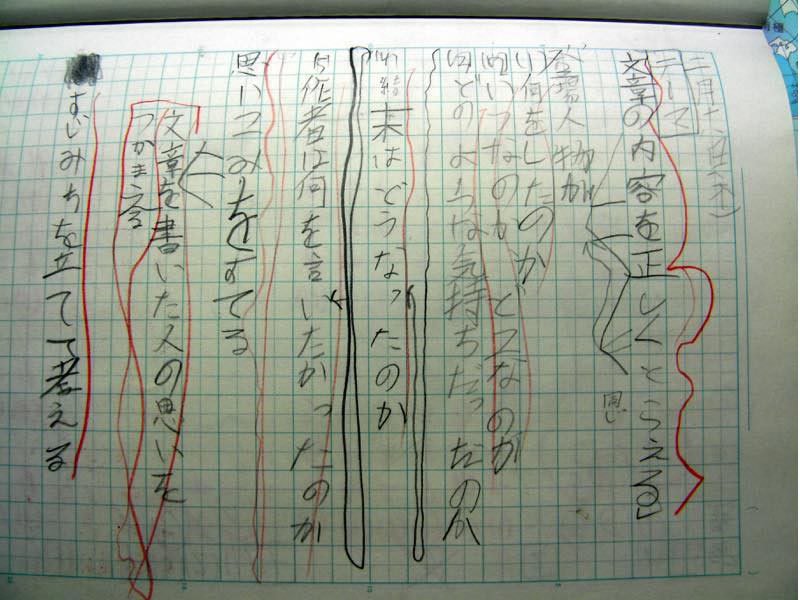 二月六日(木)
文章の内容を正しくとらえる
同じ
登場人物が
(1)何をしたのか
(2)いつなのか どこなのか
(3)どのような気持ちだったのか
(4)結末はどうなったのか
(5)作者は何を言いたかったのか
思いこみをすてる
文章を書いた人の思いを
つかまえる
すじみちを立てて考える